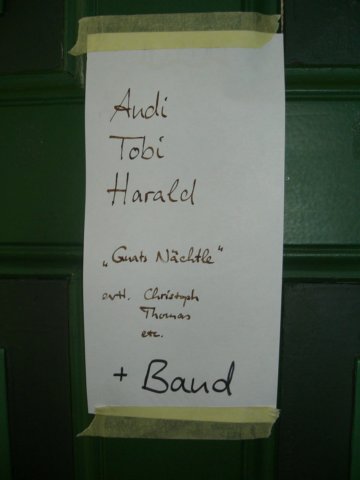 Andi
Tobi
Harald
„Guats Nächtle"
evtl. Christoph
Thomas
etc.
+ Band